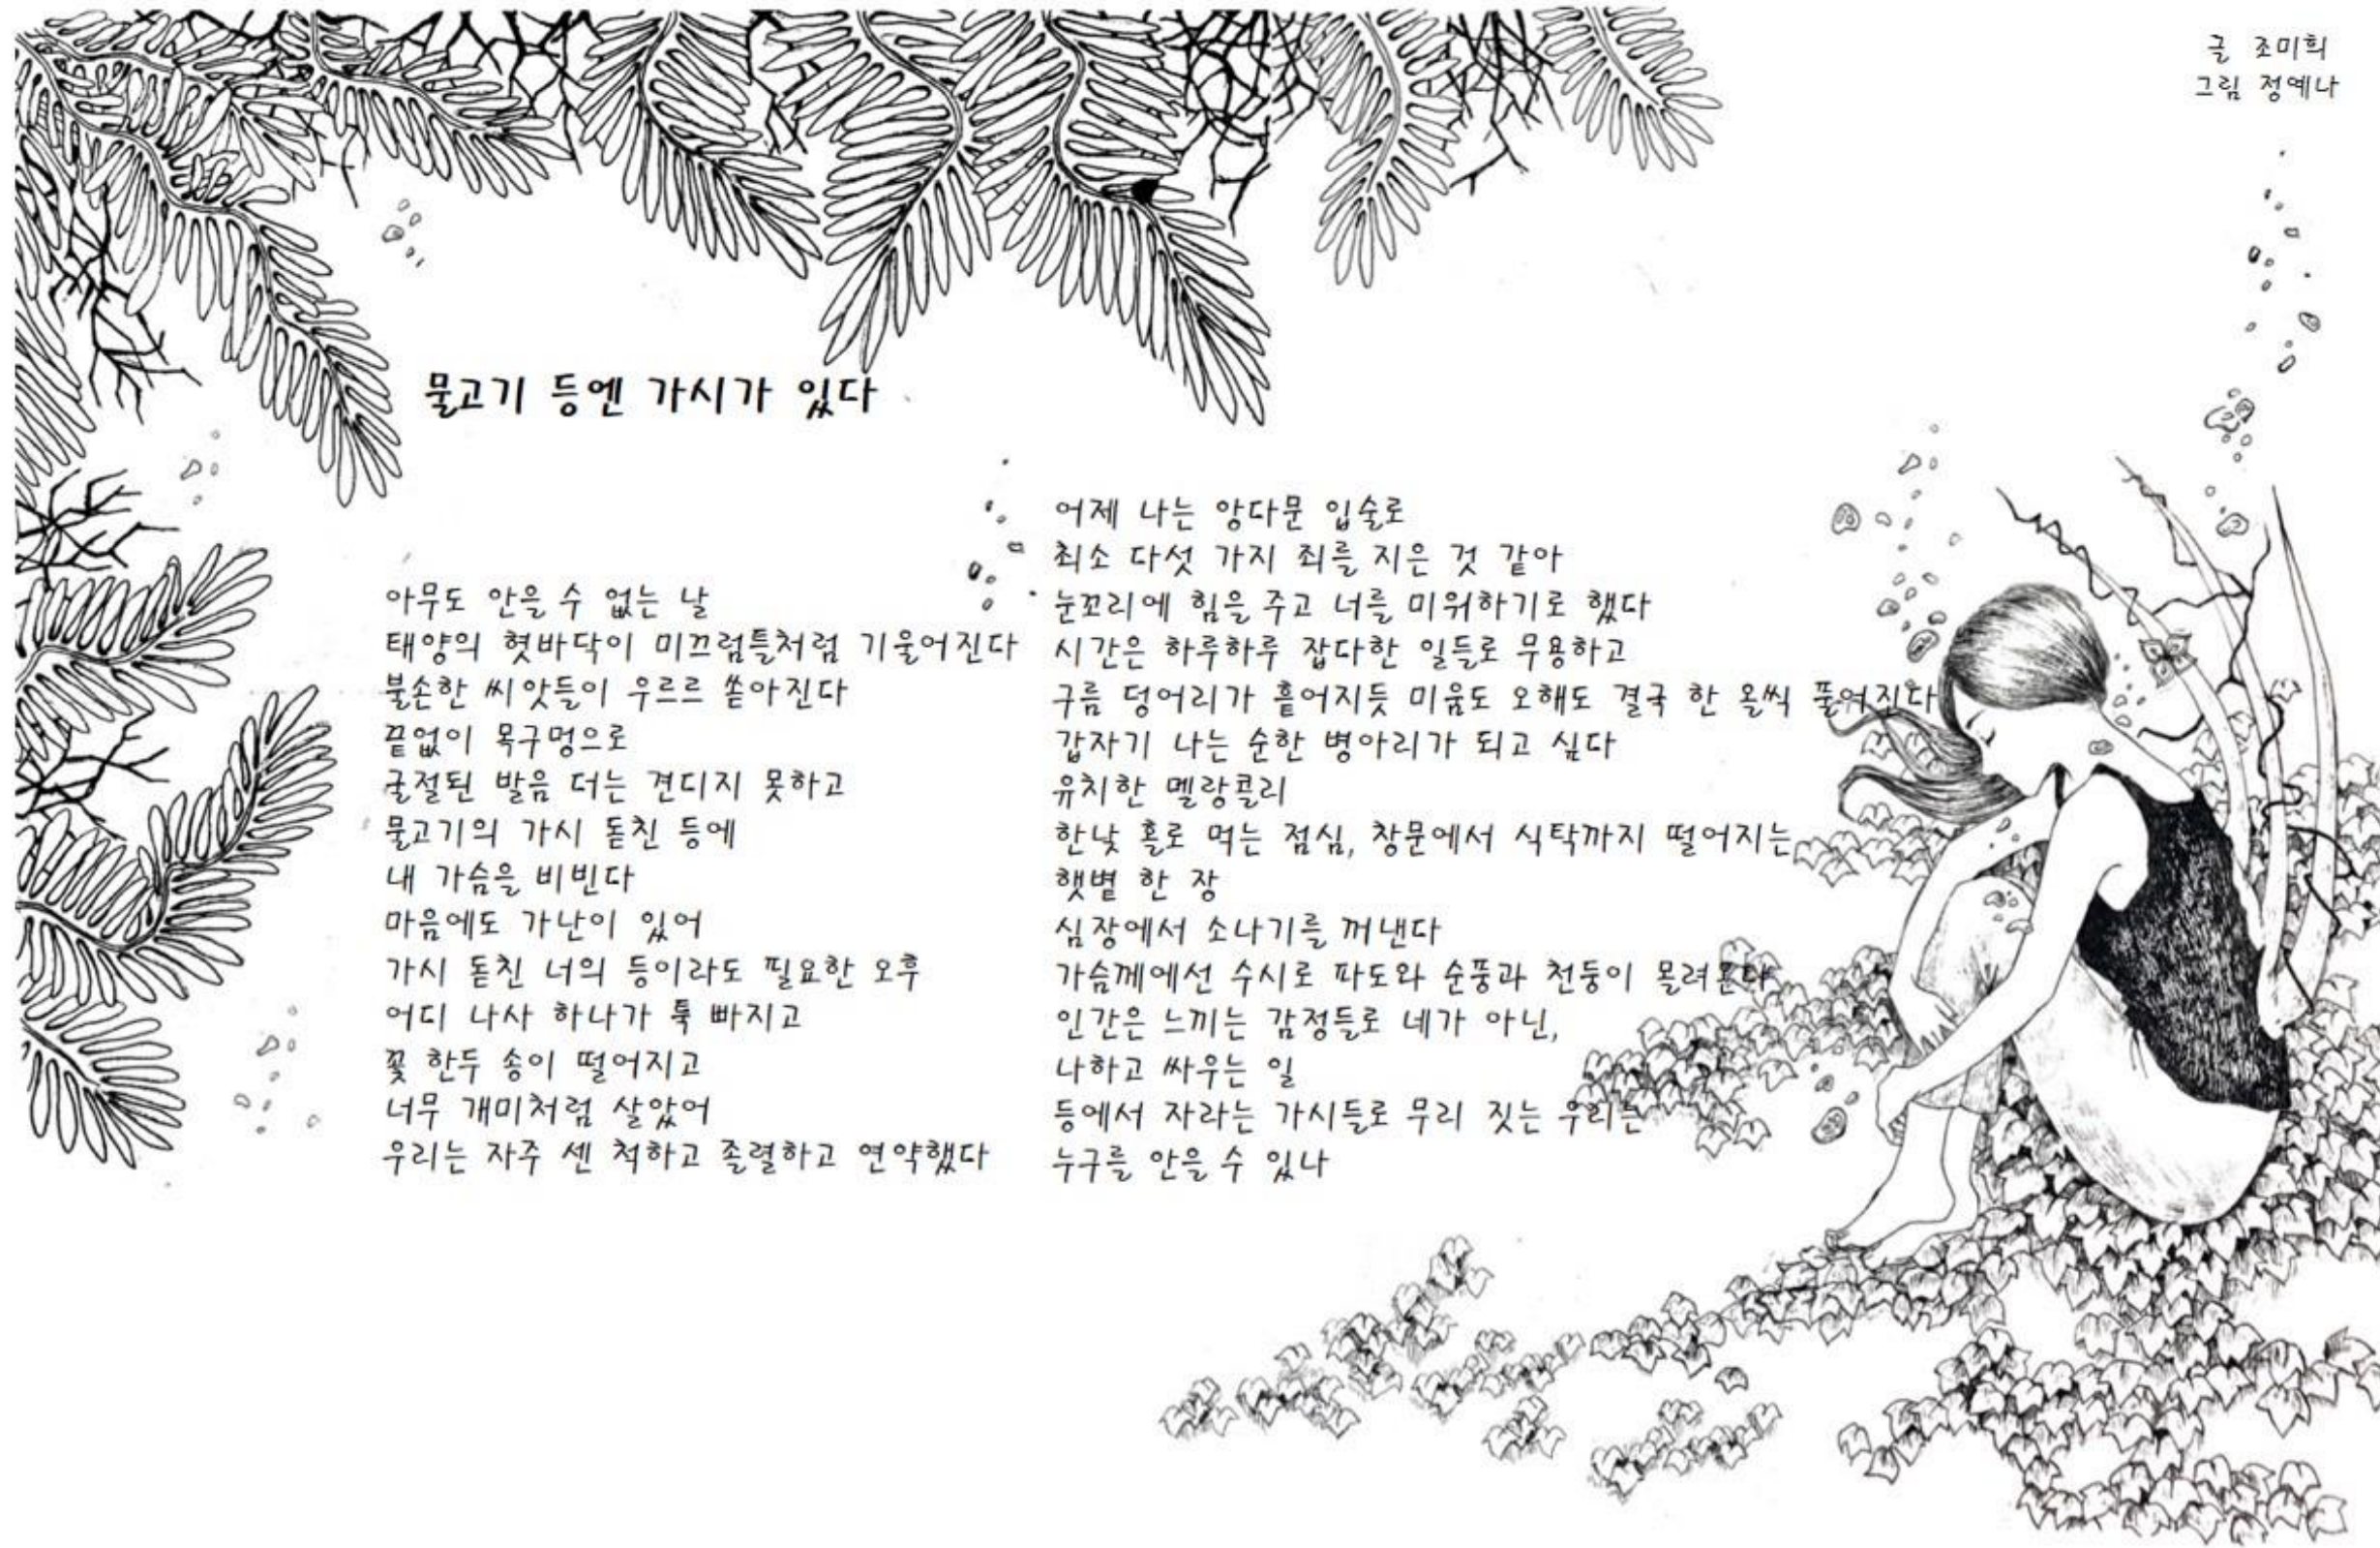 글 조미희
그림 정예나
물고기 등엔 가시가 있다
아무도 안을 수 없는 날
태양의 혓바닥이 미끄럼틀처럼 기울어진다
불손한 씨앗들이 우르르 쏟아진다
끝없이 목구멍으로
굴절된 발음 더는 견디지 못하고
물고기의 가시 돋친 등에
내 가슴을 비빈다
마음에도 가난이 있어
가시 돋친 너의 등이라도 필요한 오후
어디 나사 하나가 툭 빠지고
꽃 한두 송이 떨어지고
너무 개미처럼 살았어
우리는 자주 센 척하고 졸렬하고 연약했다
어제 나는 앙다문 입술로
최소 다섯 가지 죄를 지은 것 같아
눈꼬리에 힘을 주고 너를 미워하기로 했다
시간은 하루하루 잡다한 일들로 무용하고
구름 덩어리가 흩어지듯 미움도 오해도 결국 한 올씩 풀여진다
갑자기 나는 순한 병아리가 되고 싶다
유치한 멜랑콜리
한낮 홀로 먹는 점심, 창문에서 식탁까지 떨어지는
햇볕 한 장
심장에서 소나기를 꺼낸다
가슴께에선 수시로 파도와 순풍과 천둥이 몰려온다
인간은 느끼는 감정들로 네가 아닌,
나하고 싸우는 일
등에서 자라는 가시들로 무리 짓는 우리는
누구를 안을 수 있나